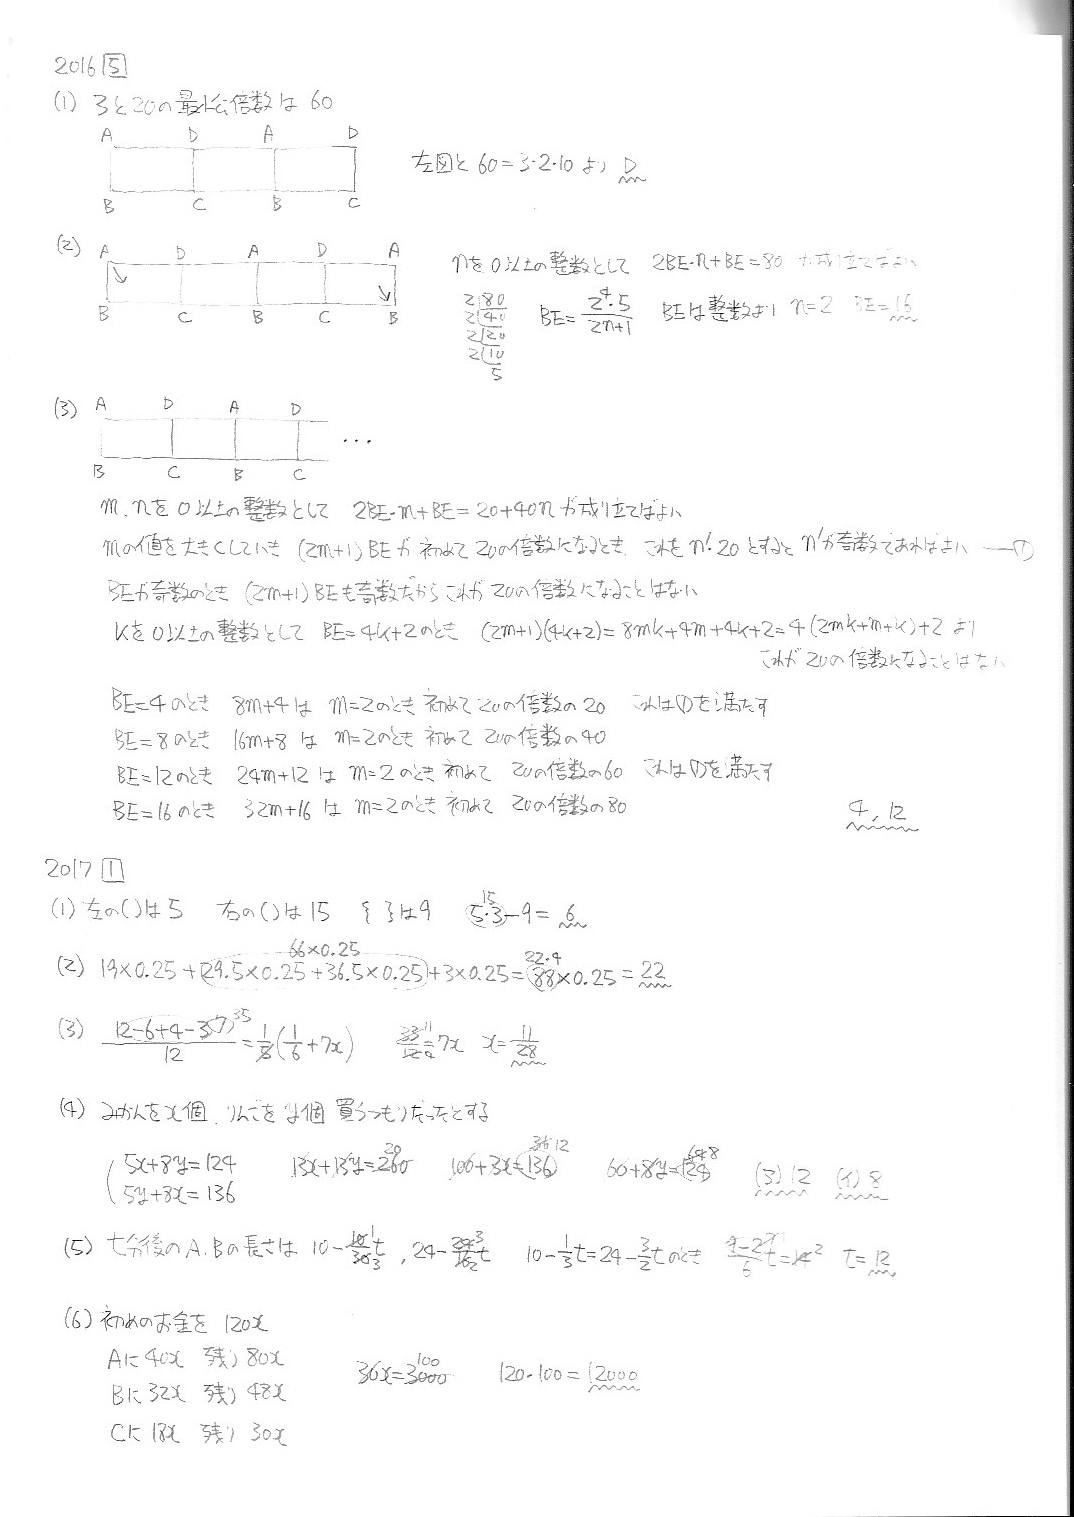 2016 5
(1) 3と20の最小公倍数は 60
A D A D
B C B C
左図と 60=3・2・10 より D
(2) A D A D A
B C B C B
nを0以上の整数として 2BE・n+BE=80 が成り立てばよい
2)80
2)40
2)20
2)10
5
BE=2^4・5/(2n+1) BEは整数より n=2 BE=16
(3) A D A D
B C B C
…
m,nを0以上の整数として 2BE・m+BE=20+40n が成り立てばよい
mの値を大きくしていき (2m+1)BEが初めて20の倍数になるとき、これをn'・20とするとn'が奇数であればよい ―①
BEが奇数のとき (2m+1)BEも奇数だからこれが20の倍数になることはない
kを0以上の整数として BE=4k+2のとき (2m+1)(4k+2)=8mk+4m+4k+2=4(2mk+m+k)+2 より
これが20の倍数になることはない
BE=4のとき 8m+4は m=2のとき初めて20の倍数の20 これは①を満たす
BE=8のとき 16m+8 は m=2のとき 初めて 20の倍数の40
BE=12のとき 24m+12 は m=2のとき初めて 20の倍数の60 これは①を満たす
BE=16のとき 32m+16 は m=2のとき初めて 20の倍数の80
4, 12
2017 1
(1) 左の( )は5 右の( )は15 { }は9 5・3-9=6
15
(2) 19×0.25+29.5×0.25+36.5×0.25+3×0.25=88×0.25=22
66×0.25
22・4
(3) (12-6+4-3・7)/12=1/8(1/6+7x) 7x x=11/28
(4) みかんをx個、りんごをy個 買うつもりだったとする
5x+8y=124
5y+8x=136
13x+13y=260 20
100+3x=136 36 12
60+8y=124 64 8
(ア)12 (イ)8
(5) t分後のA,Bの長さは 10-10/30t, 24-24/16t 10-1/3t=24-3/2tのとき t=12
(6) 初めのお金を 120x
Aに40x 残り 80x
Bに32x 残り 48x
Cに18x 残り 30x
36x=3000 100
120・100=12000